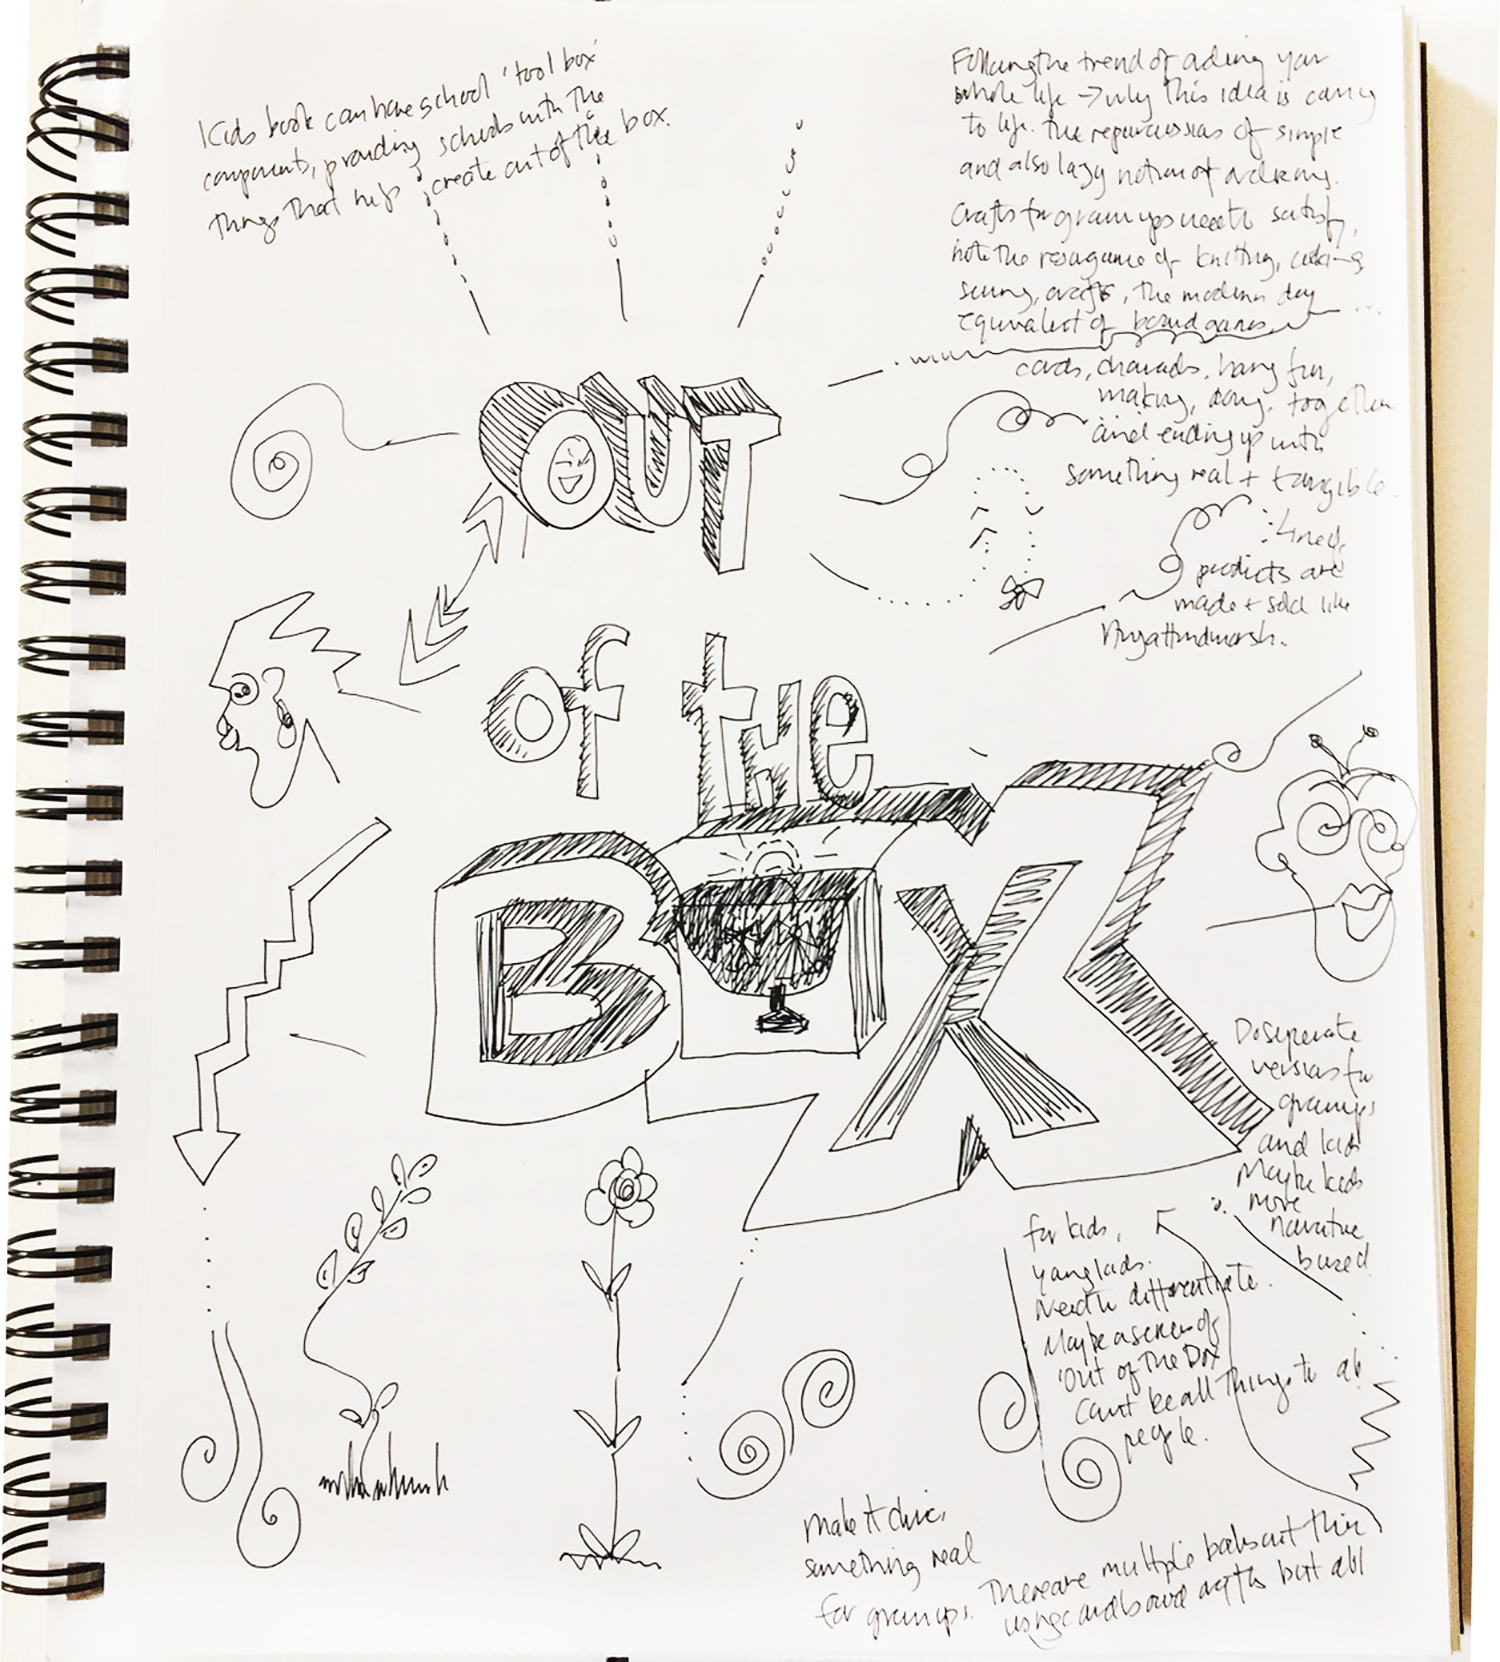 Kids book can have school 'tool box'
components, providing schools with the
things that help create out of the box.
Following the trend of ordering your
whole life → why this idea is coming
to life. The repercussions of simple
and also lazy notion of ordering.
Crafts for grownups need to satisfy,
note the resurgence of knitting, cooking
sewing, crafts, the modern day
equivalent of board games
cards, charades, having fun,
making, doing, together
and ending up with
something real + tangible.
products are
made + sold like
OUT
of the
BOX
Do seperate
versions for
grownups
and kids
Maybe kids
more
narrative
based
for kids,
young kids.
Need to differentiate.
Maybe a series of
'Out of the Box
Cant be all things to all
people.
Make it chic,
something real
for grownups.
There are multiple books out there
using cardboard crafts but all